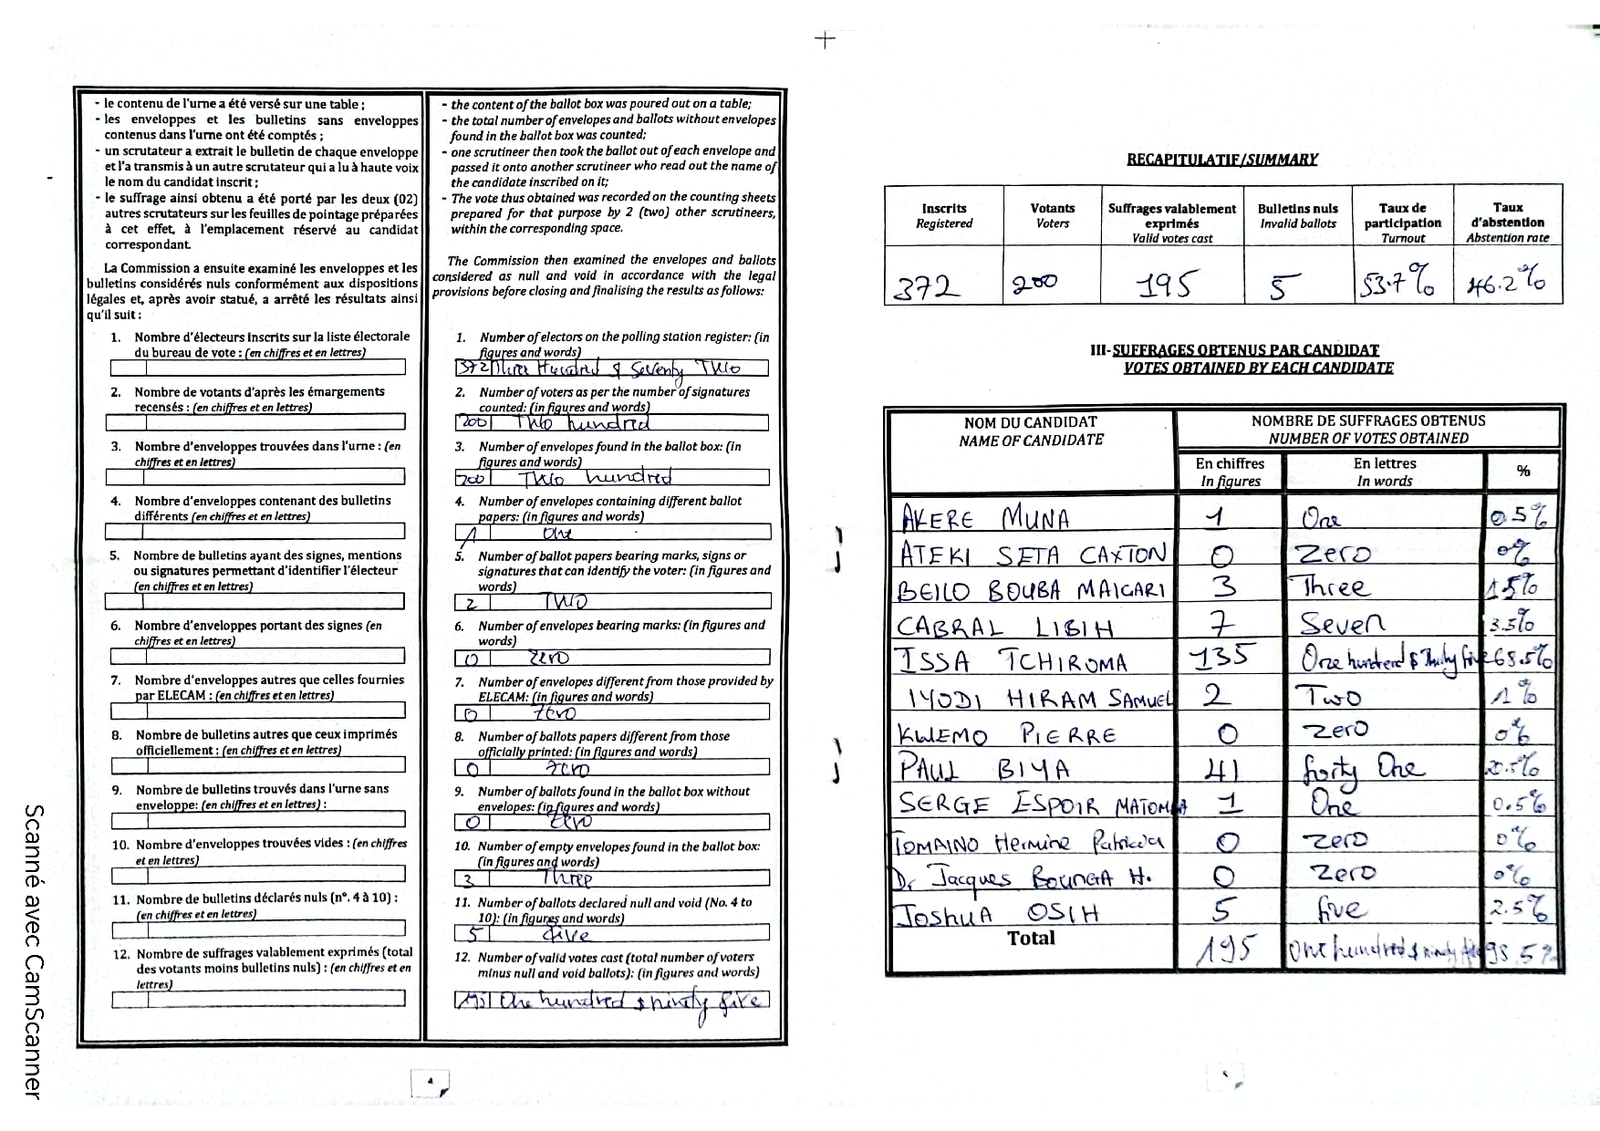 - le contenu de l'urne a été versé sur une table ;
- les enveloppes et les bulletins sans enveloppes
contenus dans l'urne ont été comptés ;
- un scrutateur a extrait le bulletin de chaque enveloppe
et l'a transmis à un autre scrutateur qui a lu à haute voix
le nom du candidat inscrit ;
- le suffrage ainsi obtenu a été porté par les deux (02)
autres scrutateurs sur les feuilles de pointage préparées
à cet effet, à l'emplacement réservé au candidat
correspondant.
La Commission a ensuite examiné les enveloppes et les
bulletins considérés nuls conformément aux dispositions
légales et, après avoir statué, a arrêté les résultats ainsi
qu'il suit :
1. Nombre d'électeurs inscrits sur la liste électorale
du bureau de vote : (en chiffres et en lettres)
2. Nombre de votants d'après les émargements
recensés : (en chiffres et en lettres)
3. Nombre d'enveloppes trouvées dans l'urne : (en
chiffres et en lettres)
4. Nombre d'enveloppes contenant des bulletins
différents (en chiffres et en lettres)
5. Nombre de bulletins ayant des signes, mentions
ou signatures permettant d'identifier l'électeur
(en chiffres et en lettres)
6. Nombre d'enveloppes portant des signes (en
chiffres et en lettres)
7. Nombre d'enveloppes autres que celles fournies
par ELECAM : (en chiffres et en lettres)
8. Nombre de bulletins autres que ceux imprimés
officiellement : (en chiffres et en lettres)
9. Nombre de bulletins trouvés dans l'urne sans
enveloppe: (en chiffres et en lettres) :
10. Nombre d'enveloppes trouvées vides : (en chiffres
et en lettres)
11. Nombre de bulletins déclarés nuls (n°. 4 à 10) :
(en chiffres et en lettres)
12. Nombre de suffrages valablement exprimés (total
des votants moins bulletins nuls) : (en chiffres et en
lettres)
- the content of the ballot box was poured out on a table;
- the total number of envelopes and ballots without envelopes
found in the ballot box was counted;
- one scrutineer then took the ballot out of each envelope and
passed it onto another scrutineer who read out the name of
the candidate inscribed on it;
- The vote thus obtained was recorded on the counting sheets
prepared for that purpose by 2 (two) other scrutineers,
within the corresponding space.
The Commission then examined the envelopes and ballots
considered as null and void in accordance with the legal
provisions before closing and finalising the results as follows:
1. Number of electors on the polling station register: (in
figures and words)
372 Three Hundred & Seventy Two
2. Number of voters as per the number of signatures
counted: (in figures and words)
200 Two hundred
3. Number of envelopes found in the ballot box: (in
figures and words)
200 Two hundred
4. Number of envelopes containing different ballot
papers: (in figures and words)
1 One
5. Number of ballot papers bearing marks, signs or
signatures that can identify the voter: (in figures and
words)
2 TWO
6. Number of envelopes bearing marks: (in figures and
words)
0 zero
7. Number of envelopes different from those provided by
ELECAM: (in figures and words)
0 zero
8. Number of ballots papers different from those
officially printed: (in figures and words)
0 zero
9. Number of ballots found in the ballot box without
envelopes: (in figures and words)
0 zero
10. Number of empty envelopes found in the ballot box:
(in figures and words)
3 Three
11. Number of ballots declared null and void (No. 4 to
10): (in figures and words)
5 five
12. Number of valid votes cast (total number of voters
minus null and void ballots): (in figures and words)
195 One hundred & ninety five
4
RECAPITULATIF/SUMMARY
Inscrits Registered | Votants Voters | Suffrages valablement exprimés Valid votes cast | Bulletins nuls Invalid ballots | Taux de participation Turnout | Taux d'abstention Abstention rate
372 200 195 5 53.7% 46.2%
III-SUFFRAGES OBTENUS PAR CANDIDAT
VOTES OBTAINED BY EACH CANDIDATE
NOM DU CANDIDAT
NAME OF CANDIDATE
NOMBRE DE SUFFRAGES OBTENUS
NUMBER OF VOTES OBTAINED
En chiffres
In figures
En lettres
In words
%
AKERE MUNA 1 One 0.5%
ATEKI SETA CAXTON 0 Zero 0%
BELLO BOUBA MAIGARI 3 Three 1.5%
CABRAL LIBIH 7 Seven 3.5%
ISSA TCHIROMA 135 One hundred & Thirty five 68.5%
IYODI HIRAM SAMUEL 2 Two 1%
KWEMO PIERRE 0 zero 0%
PAUL BIYA 41 forty One 20.5%
SERGE ESPOIR MATOMBA 1 One 0.5%
TOMAINO Hermine Patricia 0 zero 0%
Dr Jacques BOUNGA H. 0 zero 0%
JOSHUA OSIH 5 five 2.5%
Total 195 One hundred & ninety five 98.5%
Scanné avec CamScanner